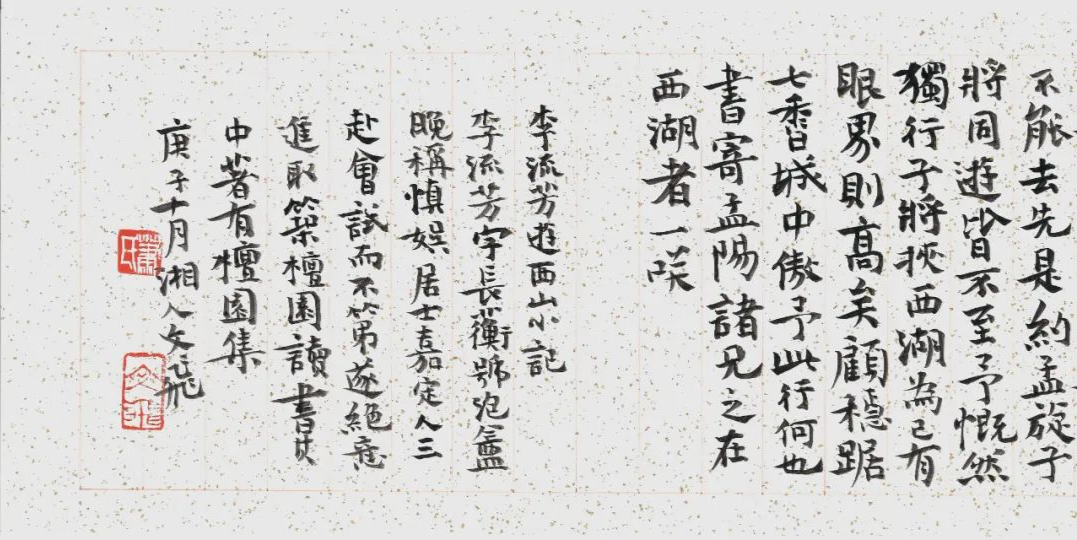 不能去先是約孟旋子
將同遊皆不至予慨然
獨行子將挾西湖為己有
眼界則高矣顧穩踞
七香城中傲予此行何也
書寄孟陽諸兄之在
西湖者一咲
李流芳遊西山小記
李流芳字長蘅號泡盦
晚稱慎娛居士嘉定人三
赴會試而不第遂絕意
進取築檀園讀書其
中著有檀園集
庚子十月湘人文飛
蕭氏